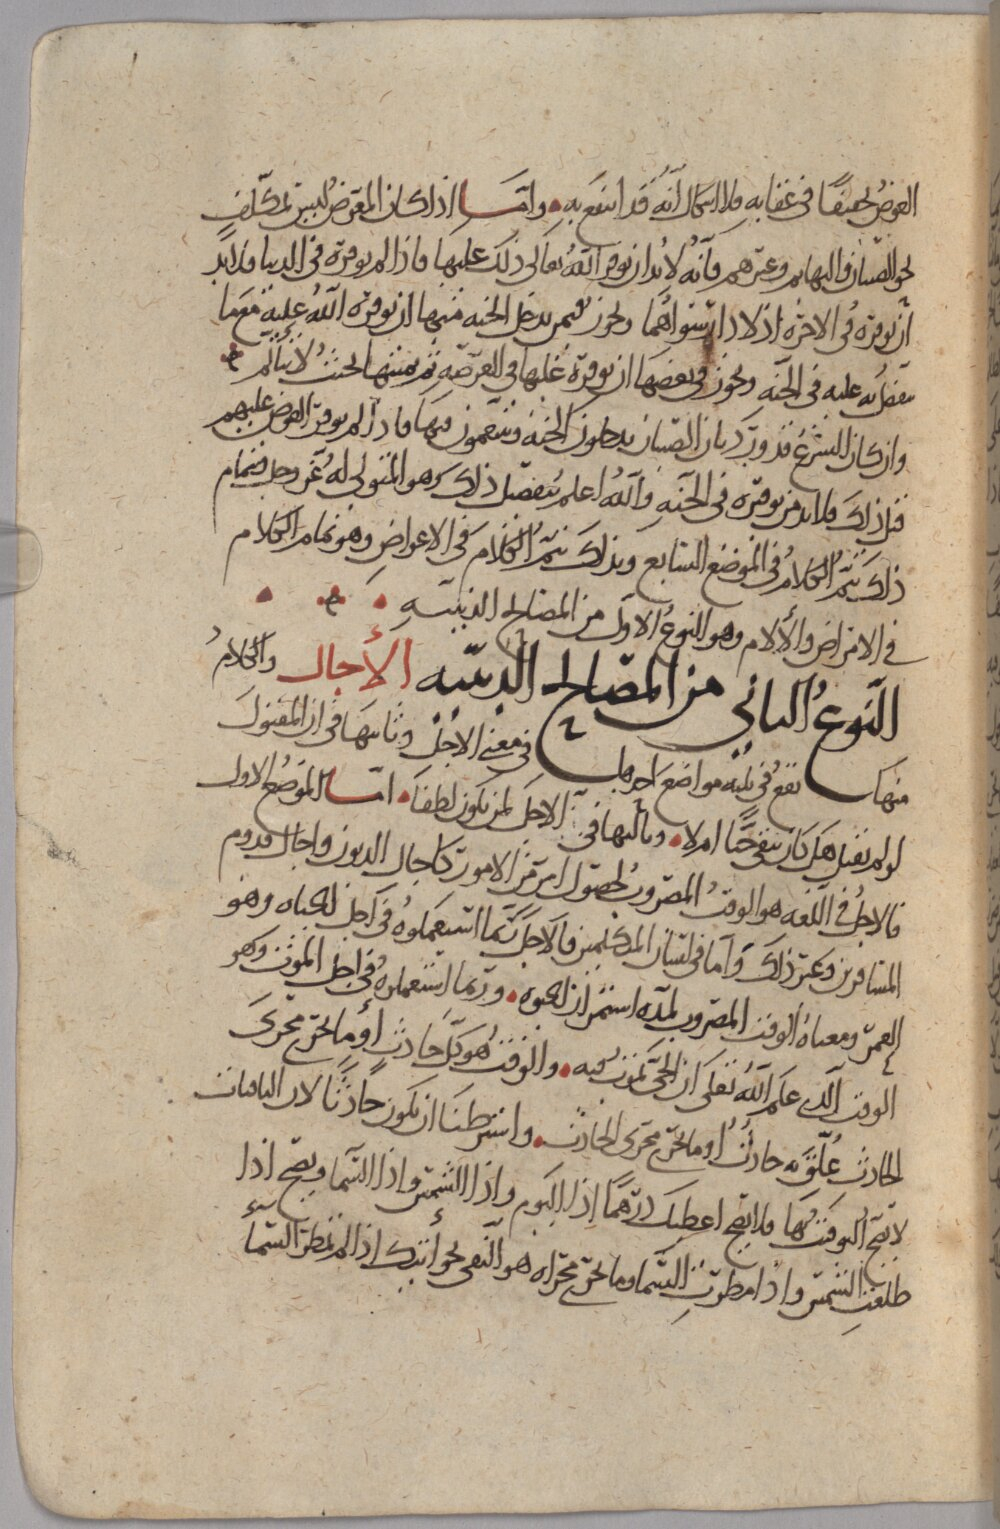 العوض تخفيفا في عقابه فلا اشكال انه قد انتفع به • واما اذا كان المعوض ليس بمكلف
نحو الصبيان والبهايم وغيرهم فانه لابد ان يوفر الله تعالى ذلك عليها فاذا لم يوفره في الدنيا فلابد
ان يوفره في الاخره اذ لا دار سواهما ويجوز فيمن يدخل الجنه منها ان يوفره الله عليه مع ما
يتفضل به عليه في الجنه ويجوز في بعضها ان يوفره عليها في العرصه ثم يميتها بحيث لا يتألم
وان كان الشرع قد ورد بان الصبيان يدخلون الجنه ويتنعمون فيها فاذا لم يوفر العوض عليهم
قبل ذلك فلابد من توفره في الجنه والله اعلم بتفصيل ذلك وهو المتولي له عز وجل فبتمام
ذلك يتم الكلام في الموضع السابع وبذلك يتم الكلام في الاعواض وهو تمام الكلام
في الامراض والألام وهو النوع الاول من المصالح الدينيه
النوع الثاني من المصالح الدينيه الأجال والكلام
منها يقع في ثلثه مواضع احدها في معنى الاجل وثانيها في ان المقتول
لو لم يقتل هل كان يبقى حيا ام لا • وثالثها في الاجل لمن يكون لطفا • اما الموضع الاول
فالاجل في اللغه هو الوقت المضروب لحصول امر من الامور كاجال الديون واجال قدوم
المسافرين وغير ذلك واما في لسان المتكلمين فالاجل ربما استعملوه في اجل الحياه وهو
العمر ومعناه الوقت المضروب لمده استمرار الحيوه • وربما استعملوه في اجل الموت وهو
الوقت الذي علم الله تعلى ان الحي يموت فيه • والوقت هو كل حادث أو ما يجري مجرى
الحادث عُلّق به حادث او ما يجري مجرى الحادث • واشترطنا ان يكون حادثا لان الباقيات
لا يصح التوقيت بها فلا يصح اعطيك درهما اذا اليوم واذا الشمس واذا السما ويصح اذا
طلعت الشمس واذا مطرت السما وما يجري مجراه هو النفي نحو أتيتك اذا لم تمطر السماء